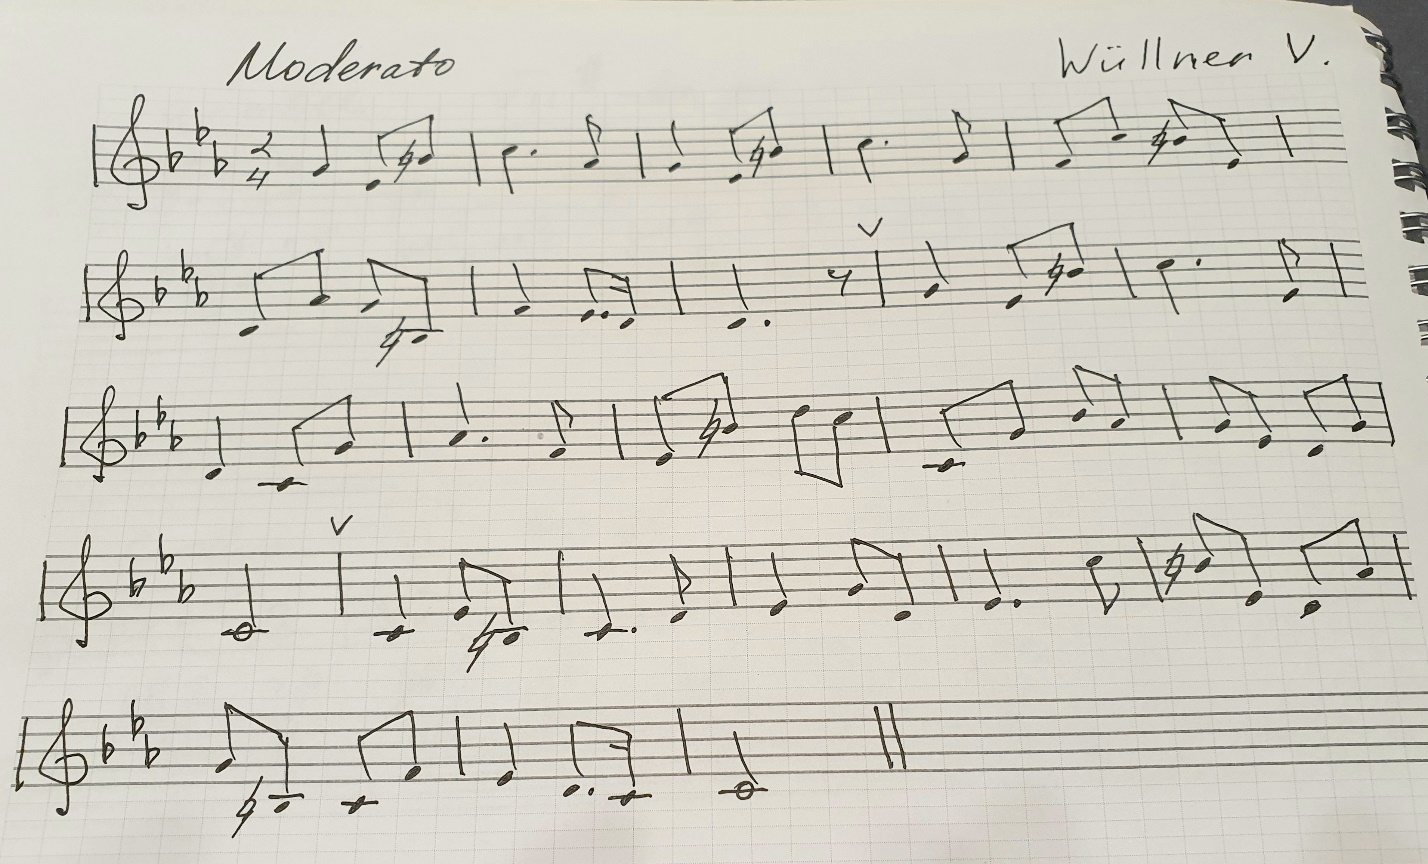 Moderato Wüllner V.
2
4
V
V